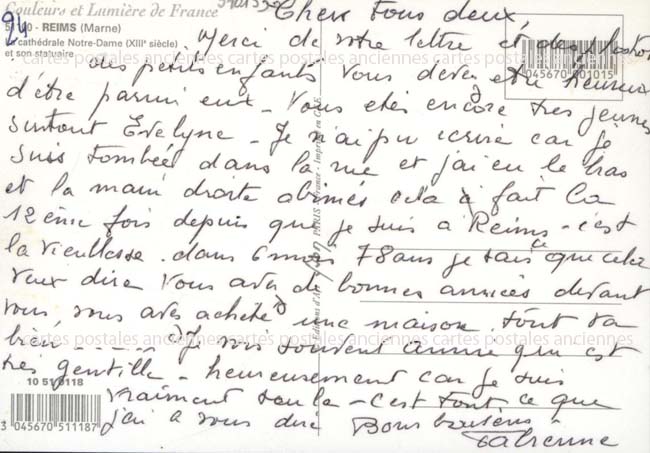 Couleurs et Lumière de France
51100 - REIMS (Marne)
La cathédrale Notre-Dame (XIIIe siècle)
et son statuaire
24
Chers tous deux,
Merci de votre lettre et des photos
des petits enfants Vous devez être heureux
d'être parmi eux - Vous etes encore très jeunes
surtout Evelyne - Je n'ai pu ecrire car je
suis tombée dans la rue et j'ai eu le bras
et la main droite abimés cela à fait la
12ème fois depuis que je suis à Reims - c'est
la vieillesse. dans 6 mois 78 ans je sais ce que cela
veux dire Vous avez de bonnes années devant
vous, vous avez acheté une maison tout va
bien ----- Je vois souvent Annie qui est
très gentille - heureusement car je suis
vraiment seule - c'est tout ce que
j'ai a vous dire Bons baisers -
Fabienne
045670 001015
10 51 0118
3 045670 511187
Editions d'Art
PARIS
Imprimé en C.E.E.
cartes postales anciennes cartes postales anciennes cartes postales anciennes
cartes postales anciennes cartes postales anciennes cartes postales anciennes